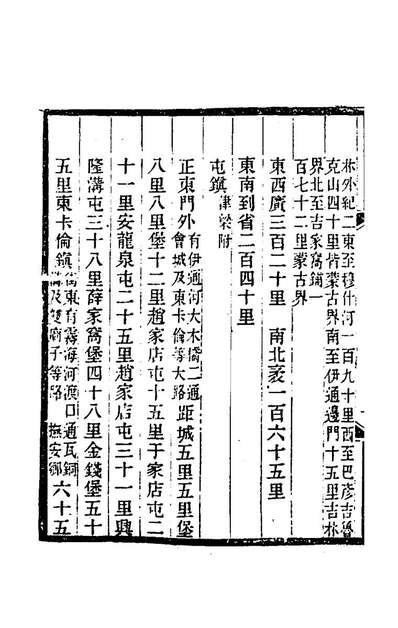 林外紀二東至穆什河一百九十里西至巴彥吉魯
克山四十里皆蒙古界南至伊通邊門十五里吉林
界北至吉家窩鋪一
百七十二里蒙古界
東西廣三百二十里　南北袤一百六十五里
東南到省二百四十里
屯鎮津梁附
正東門外有伊通河大木橋二通
會城及東卡倫等大路距城五里五里堡
八里八里堡十二里趙家店屯十五里于家店屯二
十一里安龍泉屯二十五里趙家店屯三十一里興
隆溝屯三十八里薛家窩堡四十八里金錢堡五十
五里東卡倫鎮街東有霧海河渡口通瓦銅
溝及雙廟子等路撫安鄉六十五